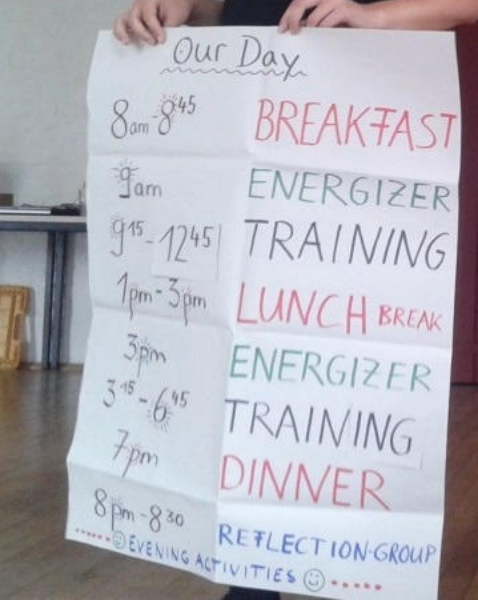 Our Day
8am-8⁴⁵ BREAKFAST
9am ENERGIZER
9¹⁵-12⁴⁵ TRAINING
1pm-3pm LUNCH BREAK
3pm ENERGIZER
3¹⁵-6⁴⁵ TRAINING
7pm DINNER
8pm-8³⁰ REFLECTION-GROUP
EVENING ACTIVITIES